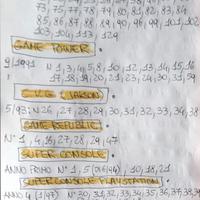 73, 75, 77, 78, 79, 80, 81, 82, 83, 84
85, 86, 87, 88, 89, 90, 96, 99, 101, 102
103, 104, 113, 129
GAME POWER.
9/1991 N 1, 3, 4, 5, 8, 10, 12, 13, 14, 15, 16
17, 18, 19, 20, 21, 23, 24, 30, 31, 59
5/93: N 26, 27, 28, 29, 30, 31, 32, 33, 34, 38
GAME REPUBLIC.
N° 1, 4, 15, 27, 28, 29, 47
SUPER CONSOLE.
ANNO PRIMO N° 1, 5 (06/94), 10, 18, 21
SUPERCONSOLE PLAYSTATION.
ANNO 4 (1/97) N° 30, 31, 32, 33, 34, 35, 36, 37, 38, 39